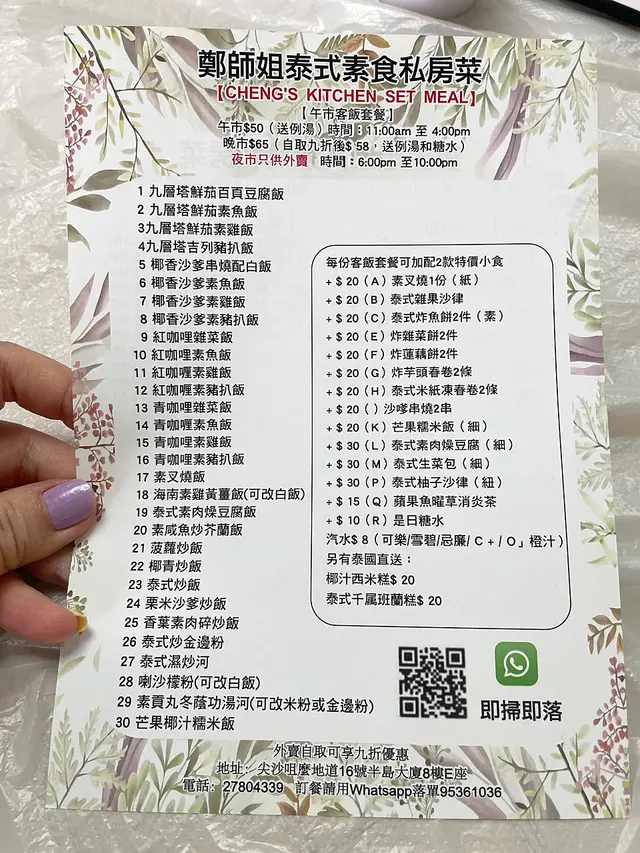 鄭師姐泰式素食私房菜
【CHENG'S KITCHEN SET MEAL】
【午市客飯套餐】
午市$50（送例湯）時間：11:00am 至 4:00pm
晚市$65（自取九折後$ 58，送例湯和糖水）
夜市只供外賣 時間：6:00pm 至10:00pm
1 九層塔鮮茄百頁豆腐飯
2 九層塔鮮茄素魚飯
3九層塔鮮茄素雞飯
4九層塔吉列豬扒飯
5 椰香沙爹串燒配白飯
6 椰香沙爹素魚飯
7 椰香沙爹素雞飯
8 椰香沙爹素豬扒飯
9 紅咖哩雜菜飯
10 紅咖哩素魚飯
11 紅咖喱素雞飯
12 紅咖喱素豬扒飯
13 青咖哩雜菜飯
14 青咖喱素魚飯
15 青咖哩素雞飯
16 青咖哩素豬扒飯
17 素叉燒飯
18 海南素雞黃薑飯(可改白飯)
19 泰式素肉燥豆腐飯
20 素咸魚炒芥蘭飯
21 菠蘿炒飯
22 椰青炒飯
23 泰式炒飯
24 栗米沙爹炒飯
25 香葉素肉碎炒飯
26 泰式炒金邊粉
27 泰式濕炒河
28 喇沙檬粉(可改白飯)
29 素貢丸冬蔭功湯河(可改米粉或金邊粉)
30 芒果椰汁糯米飯
每份客飯套餐可加配2款特價小食
+ $ 20（A）素叉燒1份（紙）
+ $ 20（B）泰式雜果沙律
+ $ 20（C）泰式炸魚餅2件（素）
+ $ 20（E）炸雜菜餅2件
+ $ 20（F）炸蓮藕餅2件
+ $ 20（G）炸芋頭春卷2條
+ $ 20（H）泰式米紙凍春卷2條
+ $ 20（ ）沙嗲串燒2串
+ $ 20（K）芒果糯米飯（細）
+ $ 30（L）泰式素肉燥豆腐（細）
+ $ 30（M）泰式生菜包（細）
+ $ 30（P）泰式柚子沙律（紐）
+ $ 15（Q）蘋果魚曜草消炎茶
+ $ 10（R）是日糖水
汽水$ 8（可樂/雪碧/忌廉/ C + / O」橙汁）
另有泰國直送：
椰汁西米糕$ 20
泰式千属班蘭糕$ 20
即掃即落
外賣自取可享九折優惠
地址：尖沙咀麼地道16號半島大廈8樓E座
電話：27804339 訂餐請用Whatsapp落單95361036